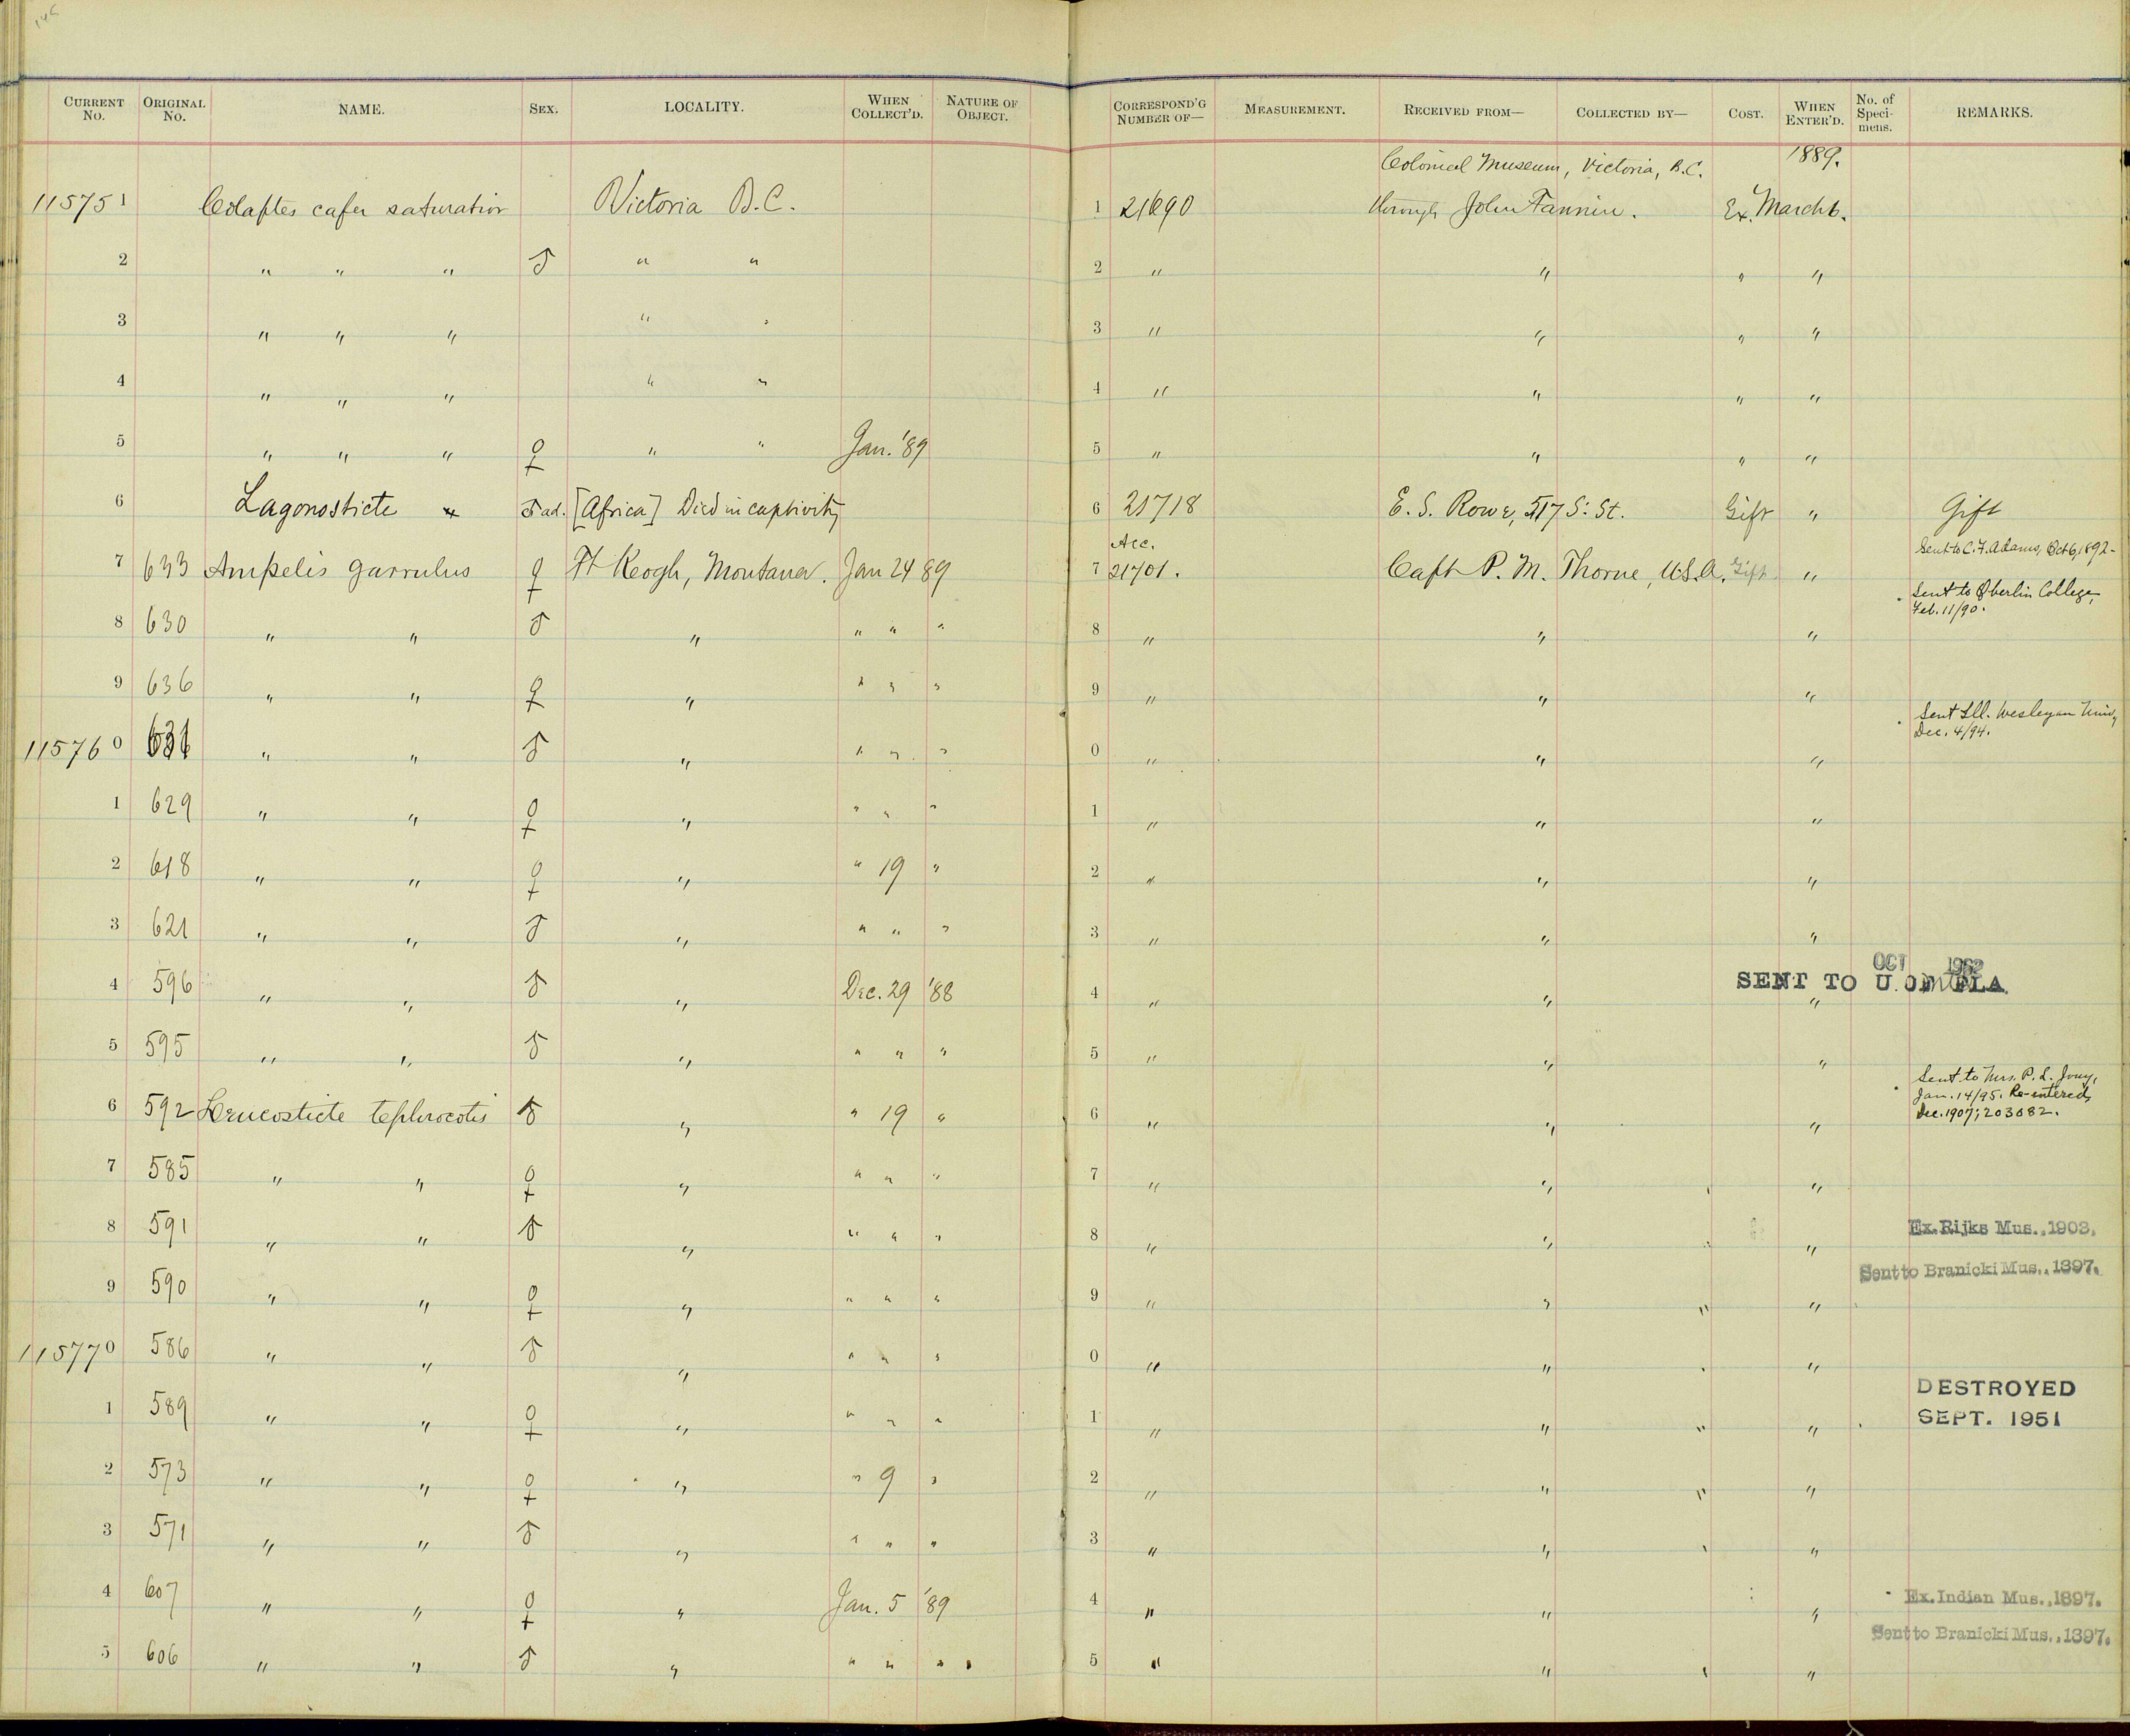 CURRENT No. ORIGINAL No. NAME. SEX. LOCALITY. WHEN COLLECT'D. NATURE OF OBJECT. CORRESPOND'G NUMBER OF— MEASUREMENT. RECEIVED FROM— COLLECTED BY— COST. WHEN ENTER'D. No. of Speci-mens. REMARKS.
Colonial Museum, Victoria, B.C. 1889.
115751 Colaptes cafer saturatior Victoria B.C. 1 21690 through John Fannin. Ex. March 6.
2 " " " ♂ " " 2 " " " "
3 " " " " " 3 " " " "
4 " " " " " 4 " " " "
5 " " " ♀ " " Jan. '89 5 " " " "
6 Lagonosticte ♂ ad. [Africa] Died in captivity 6 21718 E. S. Rowe, 517 S. St. Gift " Gift
Sent to C. F. Adams, Oct 6, 1892-
7 633 Ampelis garrulus ♀ Ft Keogh, Montana. Jan 24 89 Acc. 7 21701. Capt P. M. Thorne, U.S.A. Gift "
Sent to Oberlin College,
Feb. 11/90.
8 630 " " ♂ " " " " 8 " " "
9 636 " " ♀ " " " " 9 " " "
Sent Ill. Wesleyan Univ,
Dec. 4/94.
115760 631 " " ♂ " " " " 0 " " "
1 629 " " ♀ " " " " 1 " " "
2 618 " " ♀ " " 19 " 2 " " "
3 621 " " ♂ " " " " 3 " " "
OCT 1962
SENT TO U. OF FLA.
4 596 " " ♂ " Dec. 29 '88 4 " " "
5 595 " " ♂ " " " " 5 " " "
Sent to Mrs. P. L. Jouy,
Jan. 14/95. Re-entered,
Dec. 1907; 203682.
6 592 Leucosticte tephrocotis ♂ " " 19 " 6 " " "
7 585 " " ♀ " " " " 7 " " "
8 591 " " ♂ " " " " 8 " " " Ex. Rijks Mus., 1903.
Sent to Branicki Mus., 1897.
9 590 " " ♀ " " " " 9 " " " "
115770 586 " " ♂ " " " " 0 " " "
DESTROYED
SEPT. 1951
1 589 " " ♀ " " " " 1 " " " "
2 573 " " ♀ " " 9 " 2 " " " "
3 571 " " ♂ " " " " 3 " " "
4 607 " " ♀ " Jan. 5 '89 4 " " " Ex. Indian Mus., 1897.
Sent to Branicki Mus., 1897.
5 606 " " ♂ " " " " 5 " " "